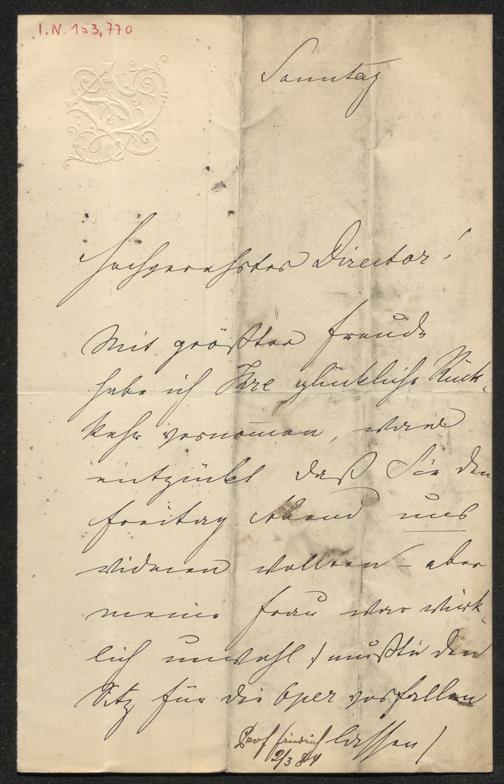 I.N. 153,770
Sonntag
Hochverehrter Director!
Mit größter Freude
habe ich Ihre glückliche Rück-
kehr vernommen, war
entzückt daß Sie den
Freitag Abend uns
widmen wollten – aber
meine Frau war wirk-
lich unwohl / mußte den
Sitz für die Oper verfallen
lassen /
Prof Friedrich
2/3 84